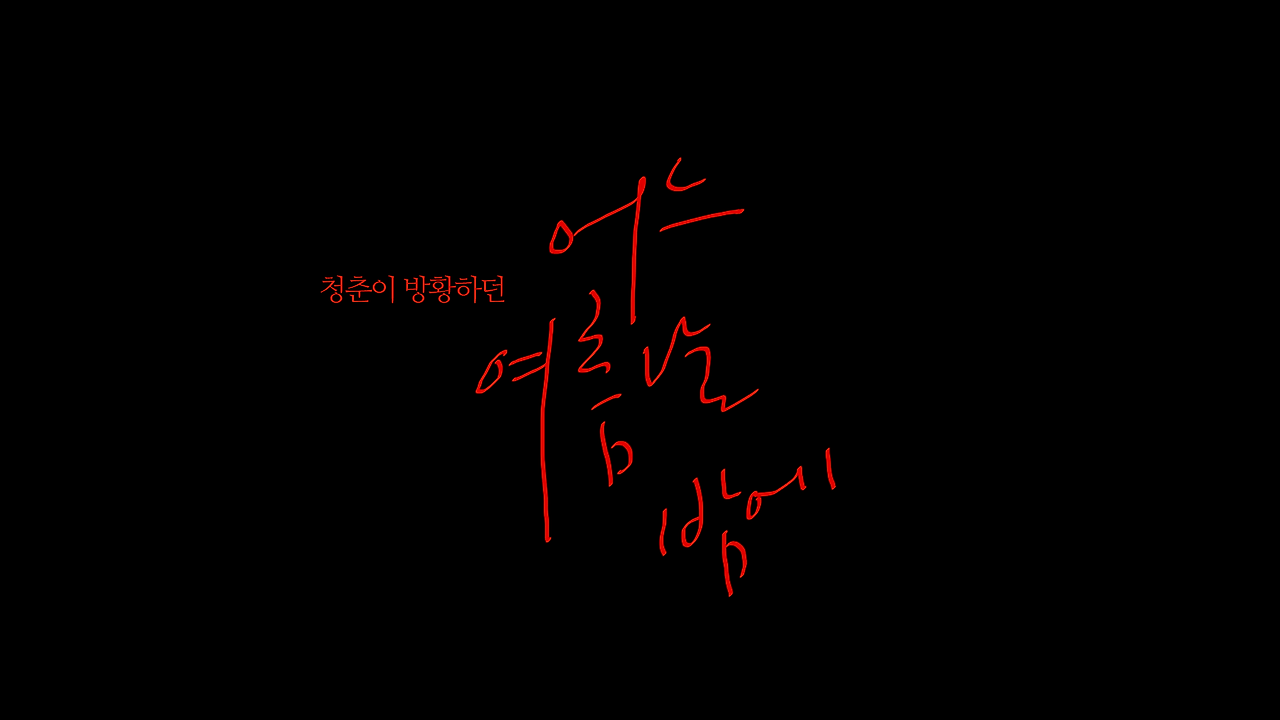 청춘이 방황하던
어느
여름날
밤에